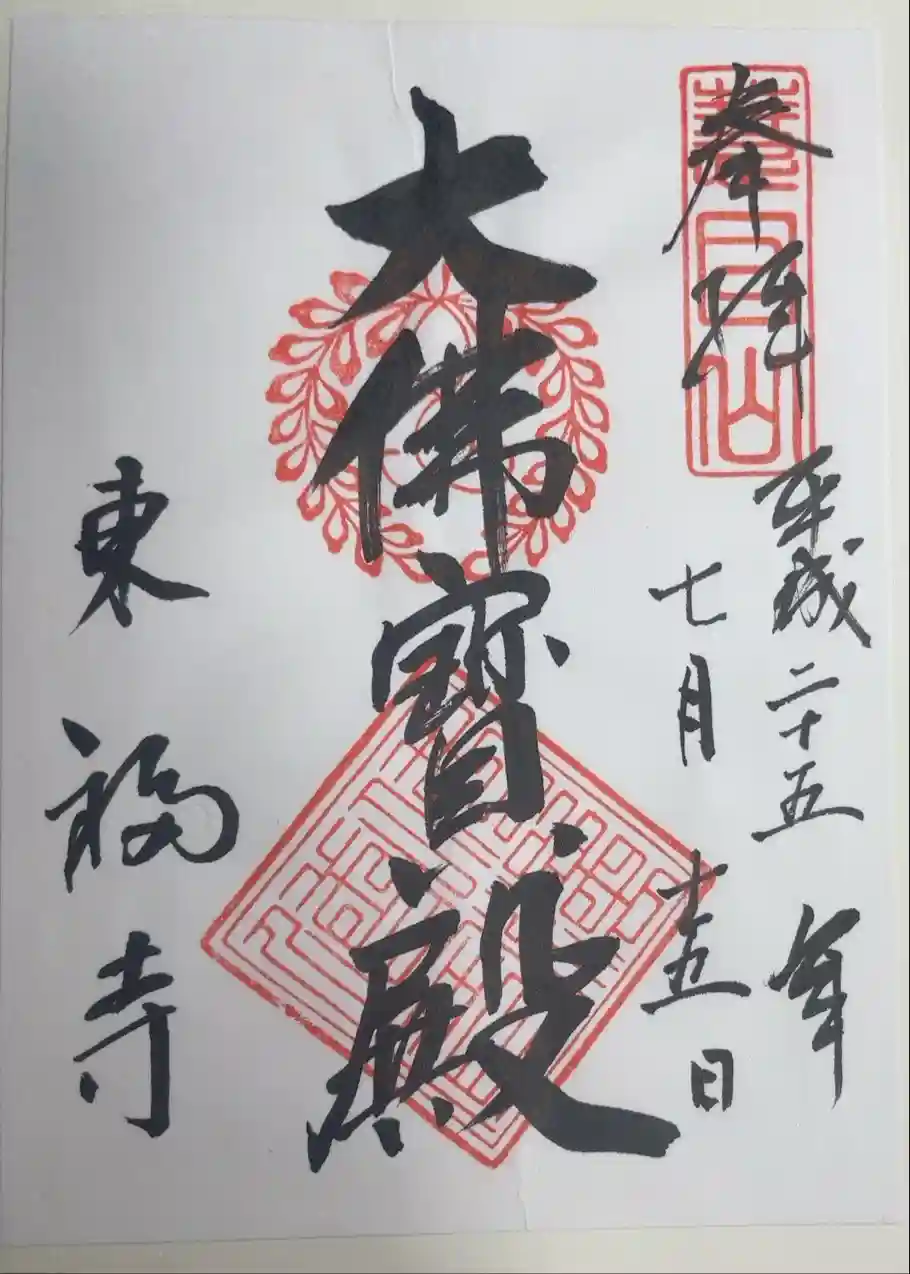 奉拝
平成二十五年
七月十五日
大佛寳殿
東福寺